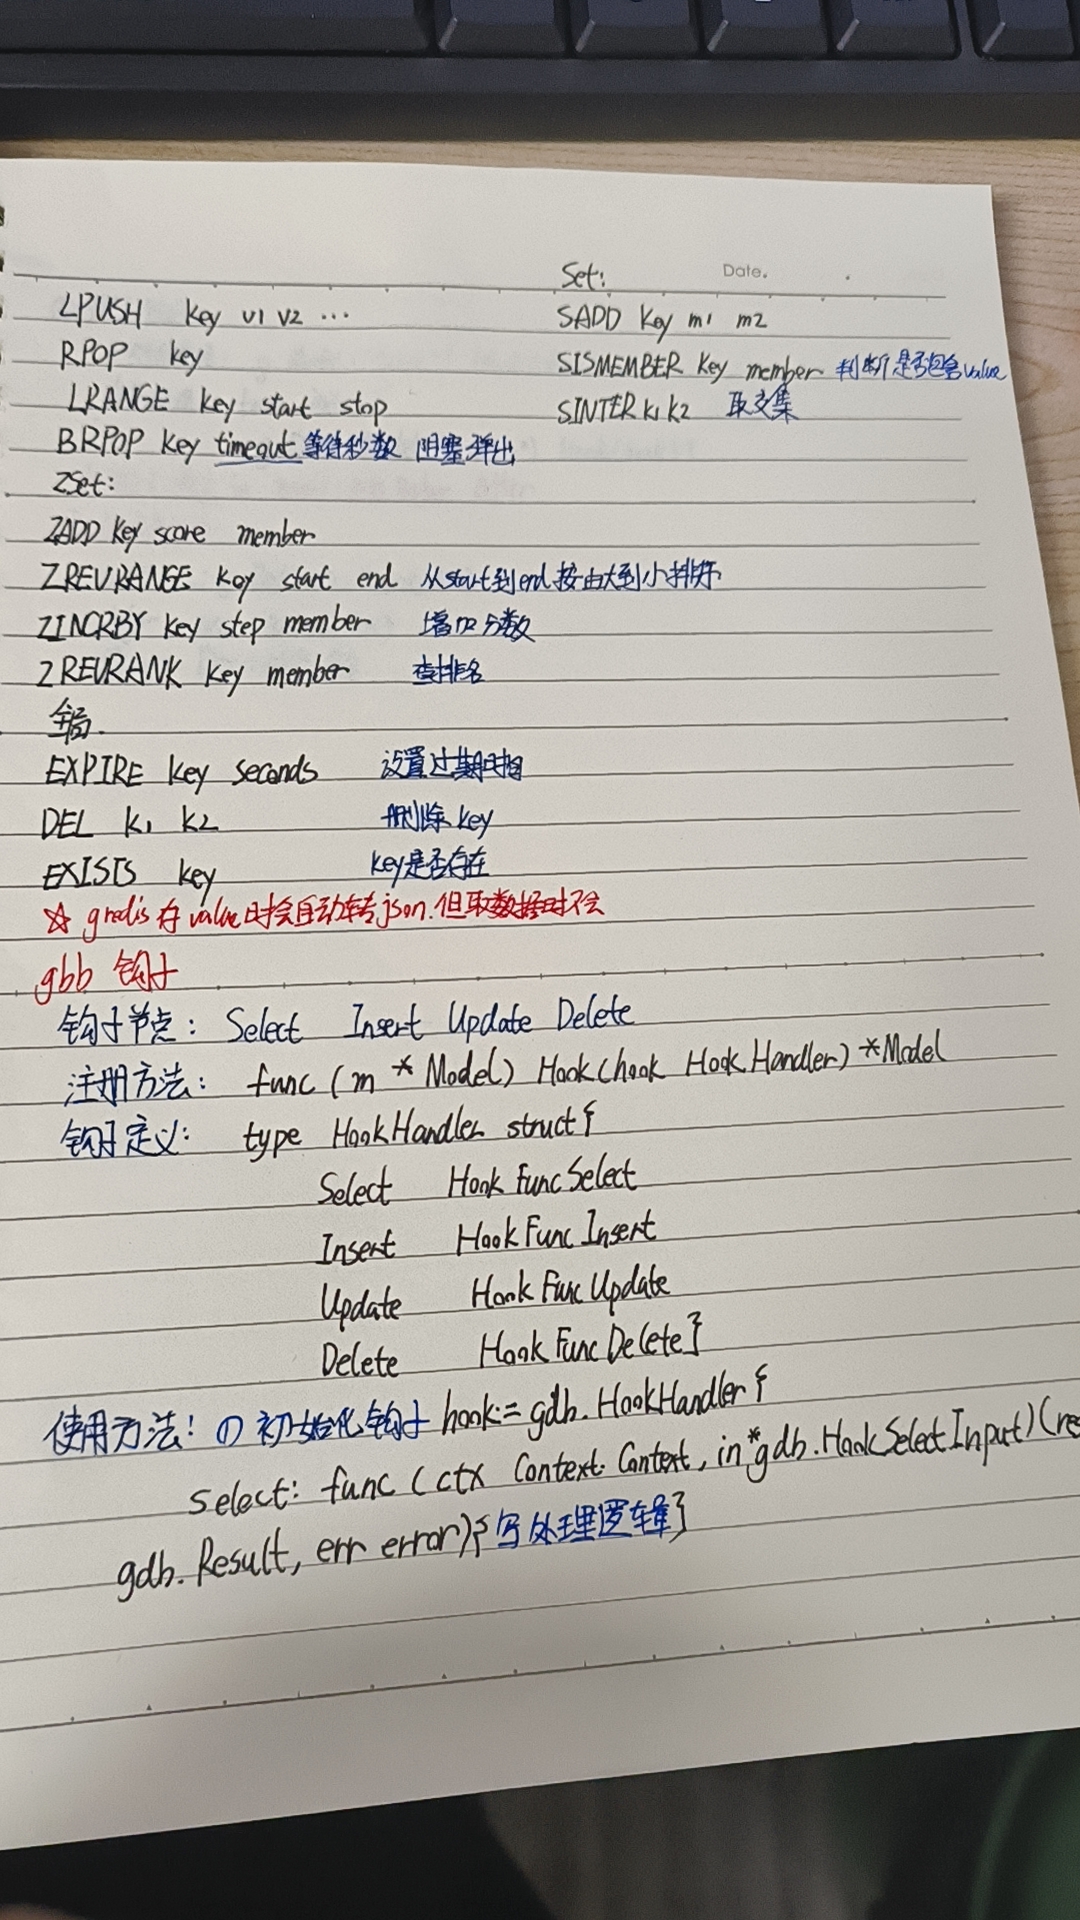 Date.
LPUSH key v1 v2 ...
RPOP key
LRANGE key start stop
BRPOP key timeout 等待秒数 阻塞弹出
Set:
SADD key m1 m2
SISMEMBER key member 判断是否包含value
SINTER k1 k2 取交集
ZSet:
ZADD key score member
ZREVRANGE key start end 从start到end按由大到小排序
ZINCRBY key step member 增加分数
ZREVRANK key member 查排名
全局.
EXPIRE key seconds 设置过期时间
DEL k1 k2 删除key
EXISTS key key是否存在
☆ gredis存value时会自动转json.但取数据时不会
gbb 钩子
钩子节点: Select Insert Update Delete
注册方法: func (m *Model) Hook(hook HookHandler) *Model
钩子定义: type HookHandler struct{
Select HookFuncSelect
Insert HookFuncInsert
Update HookFuncUpdate
Delete HookFuncDelete}
使用方法: (1) 初始化钩子 hook:= gdb.HookHandler{
Select: func (ctx Context.Context, in *gdb.HookSelectInput) (res
gdb.Result, err error){写处理逻辑}